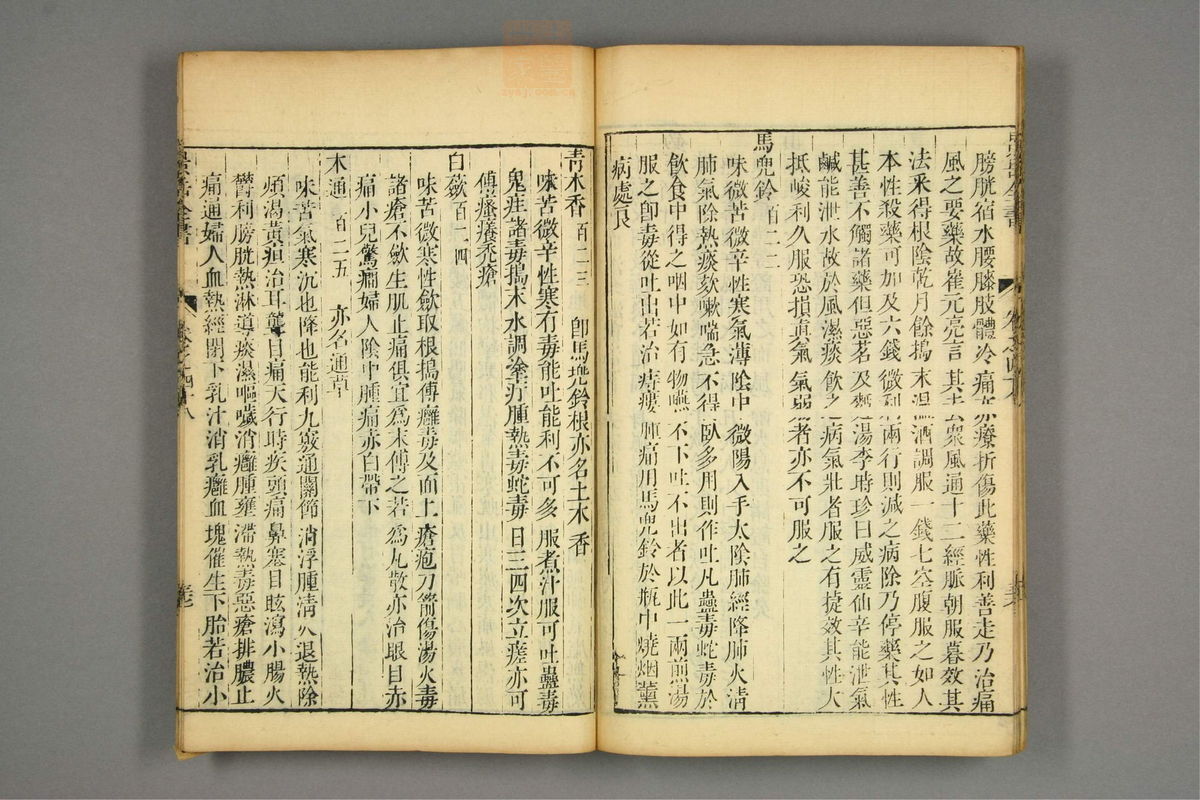 膀胱宿水腰膝肢體冷痛亦療折傷此藥性利善走乃治痛
風之要藥故崔元亮言其去衆風通十二經脈朝服暮效其
法采得根陰乾月餘搗末温酒調服一錢七空腹服之如人
本性殺藥可加及六錢微利兩行則減之病除乃停藥其性
甚善不觸諸藥但惡茗及麪湯李時珍曰威靈仙辛能泄氣
鹹能泄水故於風濕痰飲之病氣壯者服之有捷效其性大
抵峻利久服恐損真氣氣弱者亦不可服之
馬兜鈴百二二
味微苦微辛性寒氣薄陰中微陽入手太陰肺經降肺火清
肺氣除熱痰欬嗽喘急不得臥多用則作吐凡蠱毒蛇毒於
飲食中得之咽中如有物嚥不下吐不出者以此一兩煎湯
服之卽毒從吐出若治痔瘻腫痛用馬兜鈴於瓶中燒烟薰
病處良
青木香百二三 卽馬兜鈴根亦名土木香
味苦微辛性寒有毒能吐能利不可多服煮汁服可吐蠱毒
鬼疰諸毒搗末水調塗疔腫熱毒蛇毒日三四次立瘥亦可
傅瘙癢禿瘡
白蘞百二四
味苦微寒性斂取根搗傅癰毒及面上瘡疱刀箭傷湯火毒
諸瘡不斂生肌止痛俱宜爲末傅之若爲丸散亦治眼目赤
痛小兒驚癇婦人陰中腫痛赤白帶下
木通百二五 亦名通草
味苦氣寒沉也降也能利九竅通關節消浮腫清火退熱除
煩渴黃疸治耳聾目痛天行時疾頭痛鼻塞目眩瀉小腸火
鬱利膀胱熱淋導痰濕嘔噦消癰腫壅滯熱毒惡瘡排膿止
痛通婦人血熱經閉下乳汁消乳癰血塊催生下胎若治小